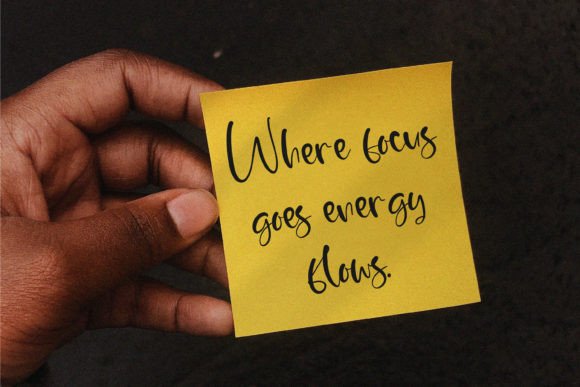 Where focus
goes energy
flows.